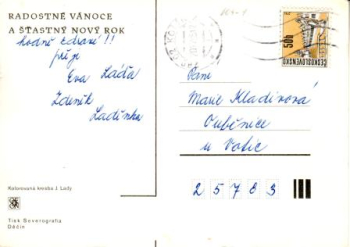 RADOSTNÉ VÁNOCE
A ŠŤASTNÝ NOVÝ ROK
hodně zdraví !!
přeje
Eva Láďa
Zdeněk
Ladinka
Kolorovaná kresba J. Lady
Tisk Severografia
Děčín
50h
ČESKOSLOVENSKO
Paní
Marie Kladivová
Ouběnice
u Votic
25783